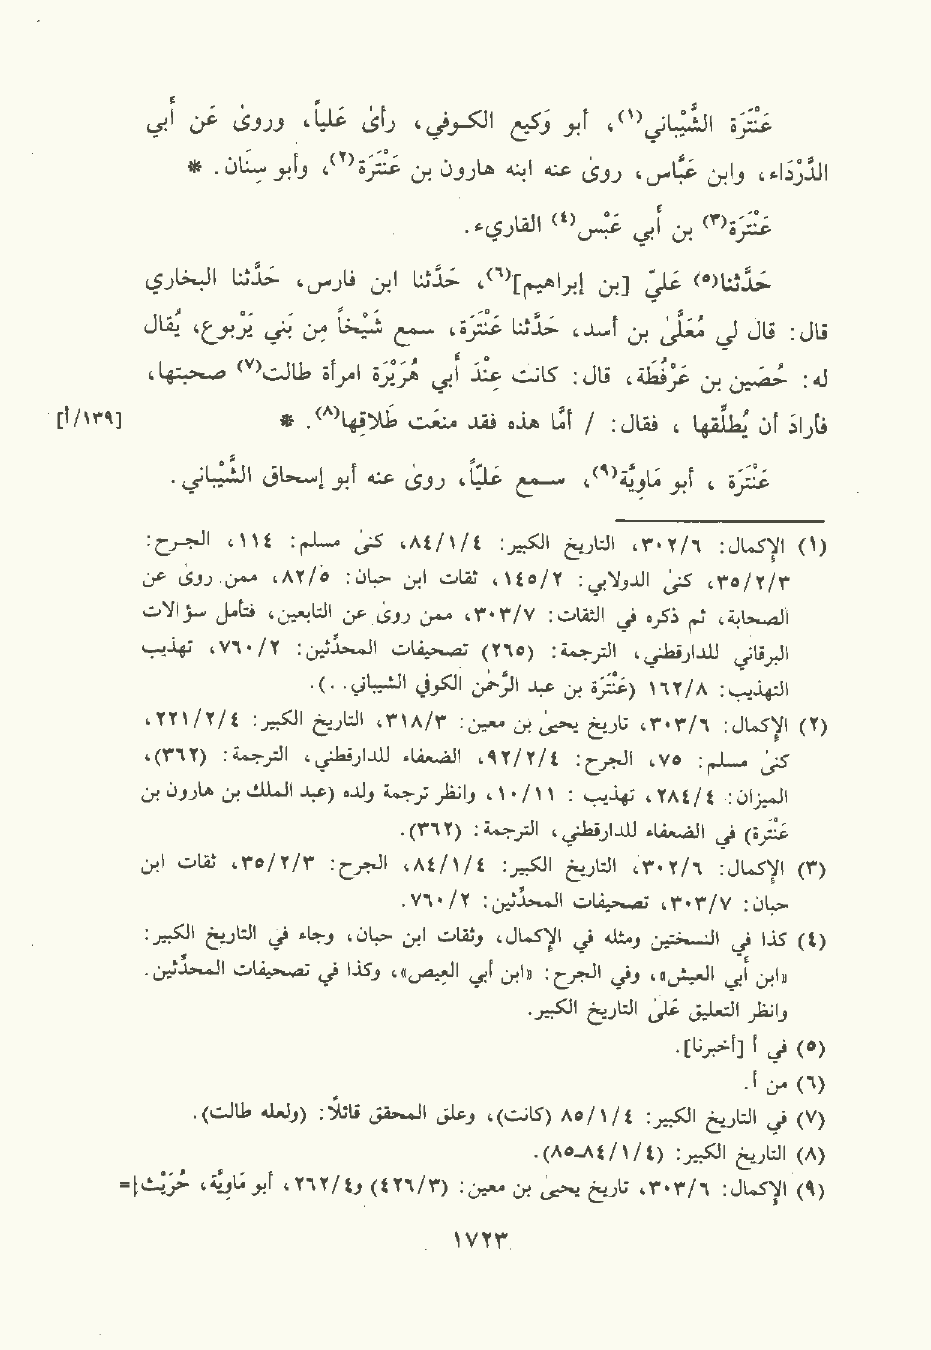 عَنْتَرَة الشَّيْبَاني(١)، أبو وَكيع الكــوفي، رأىٰ عَلياً، وروىٰ عَن أَبي
الدَّرْدَاء، وابن عَبَّاس، روىٰ عنه ابنه هارون بن عَنْتَرَة(٢)، وأبو سِنَان. *
عَنْتَرَة(٣) بن أَبي عَبْس(٤) القاريء.
حَدَّثنا(٥) عَليّ [بن إبراهيم](٦)، حَدَّثنا ابن فارس، حَدَّثنا البخاري
قال: قال لي مُعَلَّىٰ بن أسد، حَدَّثنا عَنْتَرَة، سمع شَيْخاً مِن بَني يَرْبوع، يُقال
له: حُصَين بن عَرْفُطَة، قال: كانت عِنْدَ أَبي هُرَيْرَة امرأة طالت(٧) صحبتها،
فأرادَ أن يُطلّقها ، فقال: / أمَّا هذه فقد منَعت طَلاقِها(٨). * [١٣٩/أ]
عَنْتَرَة ، أبو مَاوِيَّة(٩)، سمع عَليّاً، روىٰ عنه أبو إسحاق الشَّيْبَاني.
(١) الإكمال: ٣٠٢/٦، التاريخ الكبير: ٨٤/١/٤، كنىٰ مسلم: ١١٤، الجرح:
٣٥/٢/٣، كنىٰ الدولابي: ١٤٥/٢، ثقات ابن حبان: ٨٢/٥، ممن روى عن
الصحابة، ثم ذكره في الثقات: ٣٠٣/٧، ممن روى عن التابعين، فتأمل سؤالات
البرقاني للدارقطني، الترجمة: (٢٦٥) تصحيفات المحدّثين: ٧٦٠/٢، تهذيب
التهذيب: ١٦٢/٨ (عَنْتَرَة بن عبد الرَّحمٰن الكوفي الشيباني. .).
(٢) الإكمال: ٣٠٣/٦، تاريخ يحيىٰ بن معين: ٣١٨/٣، التاريخ الكبير: ٢٢١/٢/٤،
كنىٰ مسلم: ٧٥، الجرح: ٩٢/٢/٤، الضعفاء للدارقطني، الترجمة: (٣٦٢)،
الميزان: ٢٨٤/٤، تهذيب : ١٠/١١، وانظر ترجمة ولده (عبد الملك بن هارون بن
عَنْتَرة) في الضعفاء للدارقطني، الترجمة: (٣٦٢).
(٣) الإكمال: ٣٠٢/٦، التاريخ الكبير: ٨٤/١/٤، الجرح: ٣٥/٢/٣، ثقات ابن
حبان: ٣٠٣/٧، تصحيفات المحدّثين: ٧٦٠/٢.
(٤) كذا في النسختين ومثله في الإكمال، وثقات ابن حبان، وجاء في التاريخ الكبير:
«ابن أَبي العيش»، وفي الجرح: «ابن أبي العِيص»، وكذا في تصحيفات المحدّثين.
وانظر التعليق عَلىٰ التاريخ الكبير.
(٥) في أ [أخبرنا].
(٦) من أ.
(٧) في التاريخ الكبير: ٨٥/١/٤ (كانت)، وعلق المحقق قائلاً: (ولعله طالت).
(٨) التاريخ الكبير: (٨٤/١/٤-٨٥).
(٩) الإكمال: ٣٠٣/٦، تاريخ يحيىٰ بن معين: (٤٢٦/٣) و٢٦٢/٤، أبو مَاوِيَّة، حُرَيْث|=
١٧٢٣